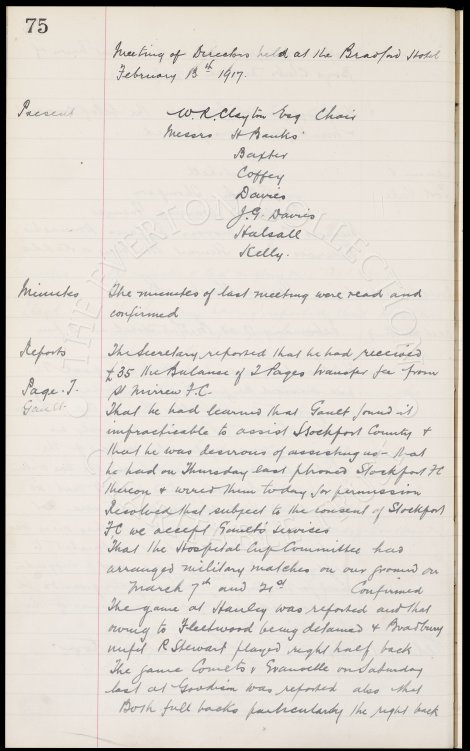 75
Meeting of Directors held at the Bradford Hotel
February 13th 1917.
Present W.R. Clayton Esq Chair
Messrs H Banks
Baxter
Coffey
Davies
J.G. Davies
Halsall
Kelly.
Minutes The minutes of last meeting were read and
confirmed
Reports The Secretary reported that he had received
£35 the Balance of Pages transfer fee from
Page. T. St Mirren F.C.
Gault. That he had learned that Gault found it
impracticable to assist Stockport County &
that he was desirous of assisting us - that
he had on Thursday last phoned Stockport FC
thereon & wired them today for permission
Resolved that subject to the consent of Stockport
FC we accept Gault's services
That the Hospital Cup Committee had
arranged military matches on our ground on
March 7th and 21st Confirmed
The game at Hanley was reported and that
owing to Fleetwood being detained & Bradbury
unfit R Stewart played right half back
The game Comets v Granville on Saturday
last at Goodison was reported also that
Both full backs particularly the right back
THE EVERTON COLLECTION